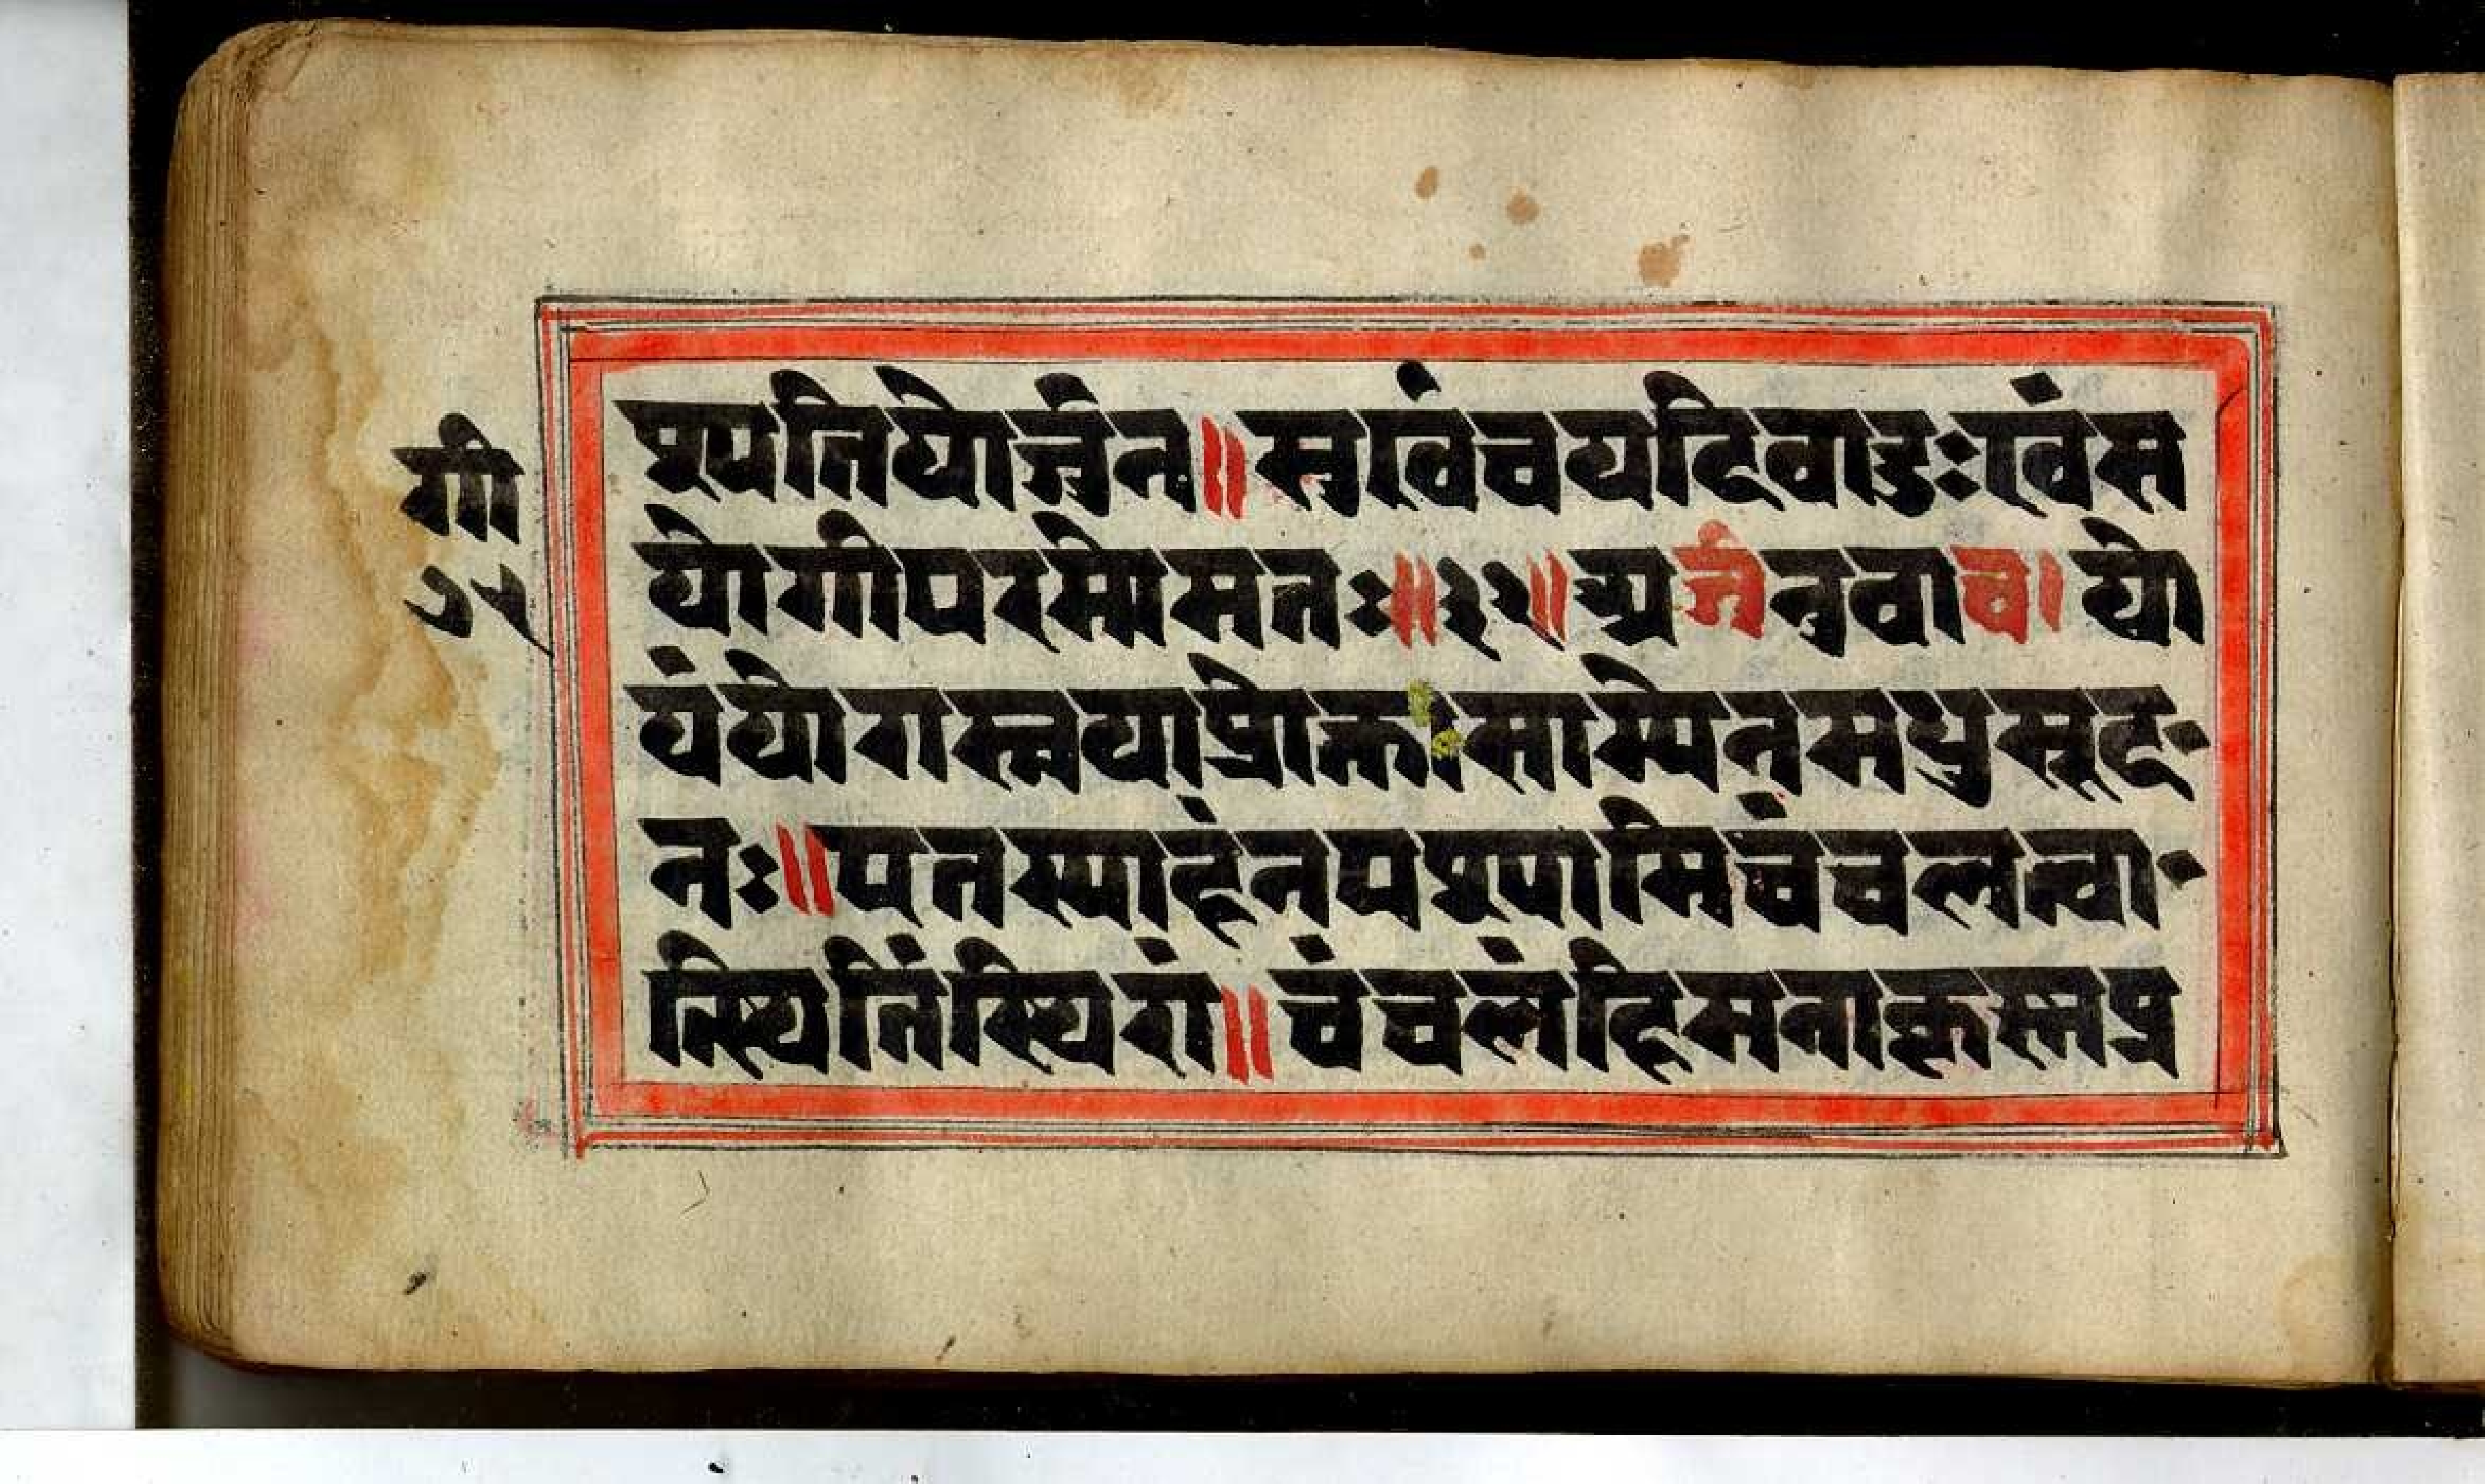 श्यतियोर्जुन॥सुखंवियदिवादुःखंस
गी
योगीपरमोमतः॥३२॥अर्जुनउवाच।यो
७५
यंयोगस्त्वयाप्रोक्तःसाम्येनमधुसूद
नः॥एतस्याहंनपश्यामिचंचलत्वा
त्स्थितिंस्थिरां॥चंचलंहिमनःकृष्णप्र